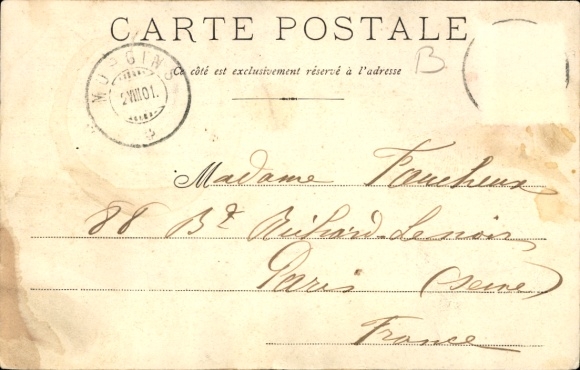 CARTE POSTALE
B
Ce côté est exclusivement réservé à l'adresse
MORGINS
2 VIII 01.
Madame Faucheux
88 Bd. Richard-Lenoir
Paris (Seine)
France